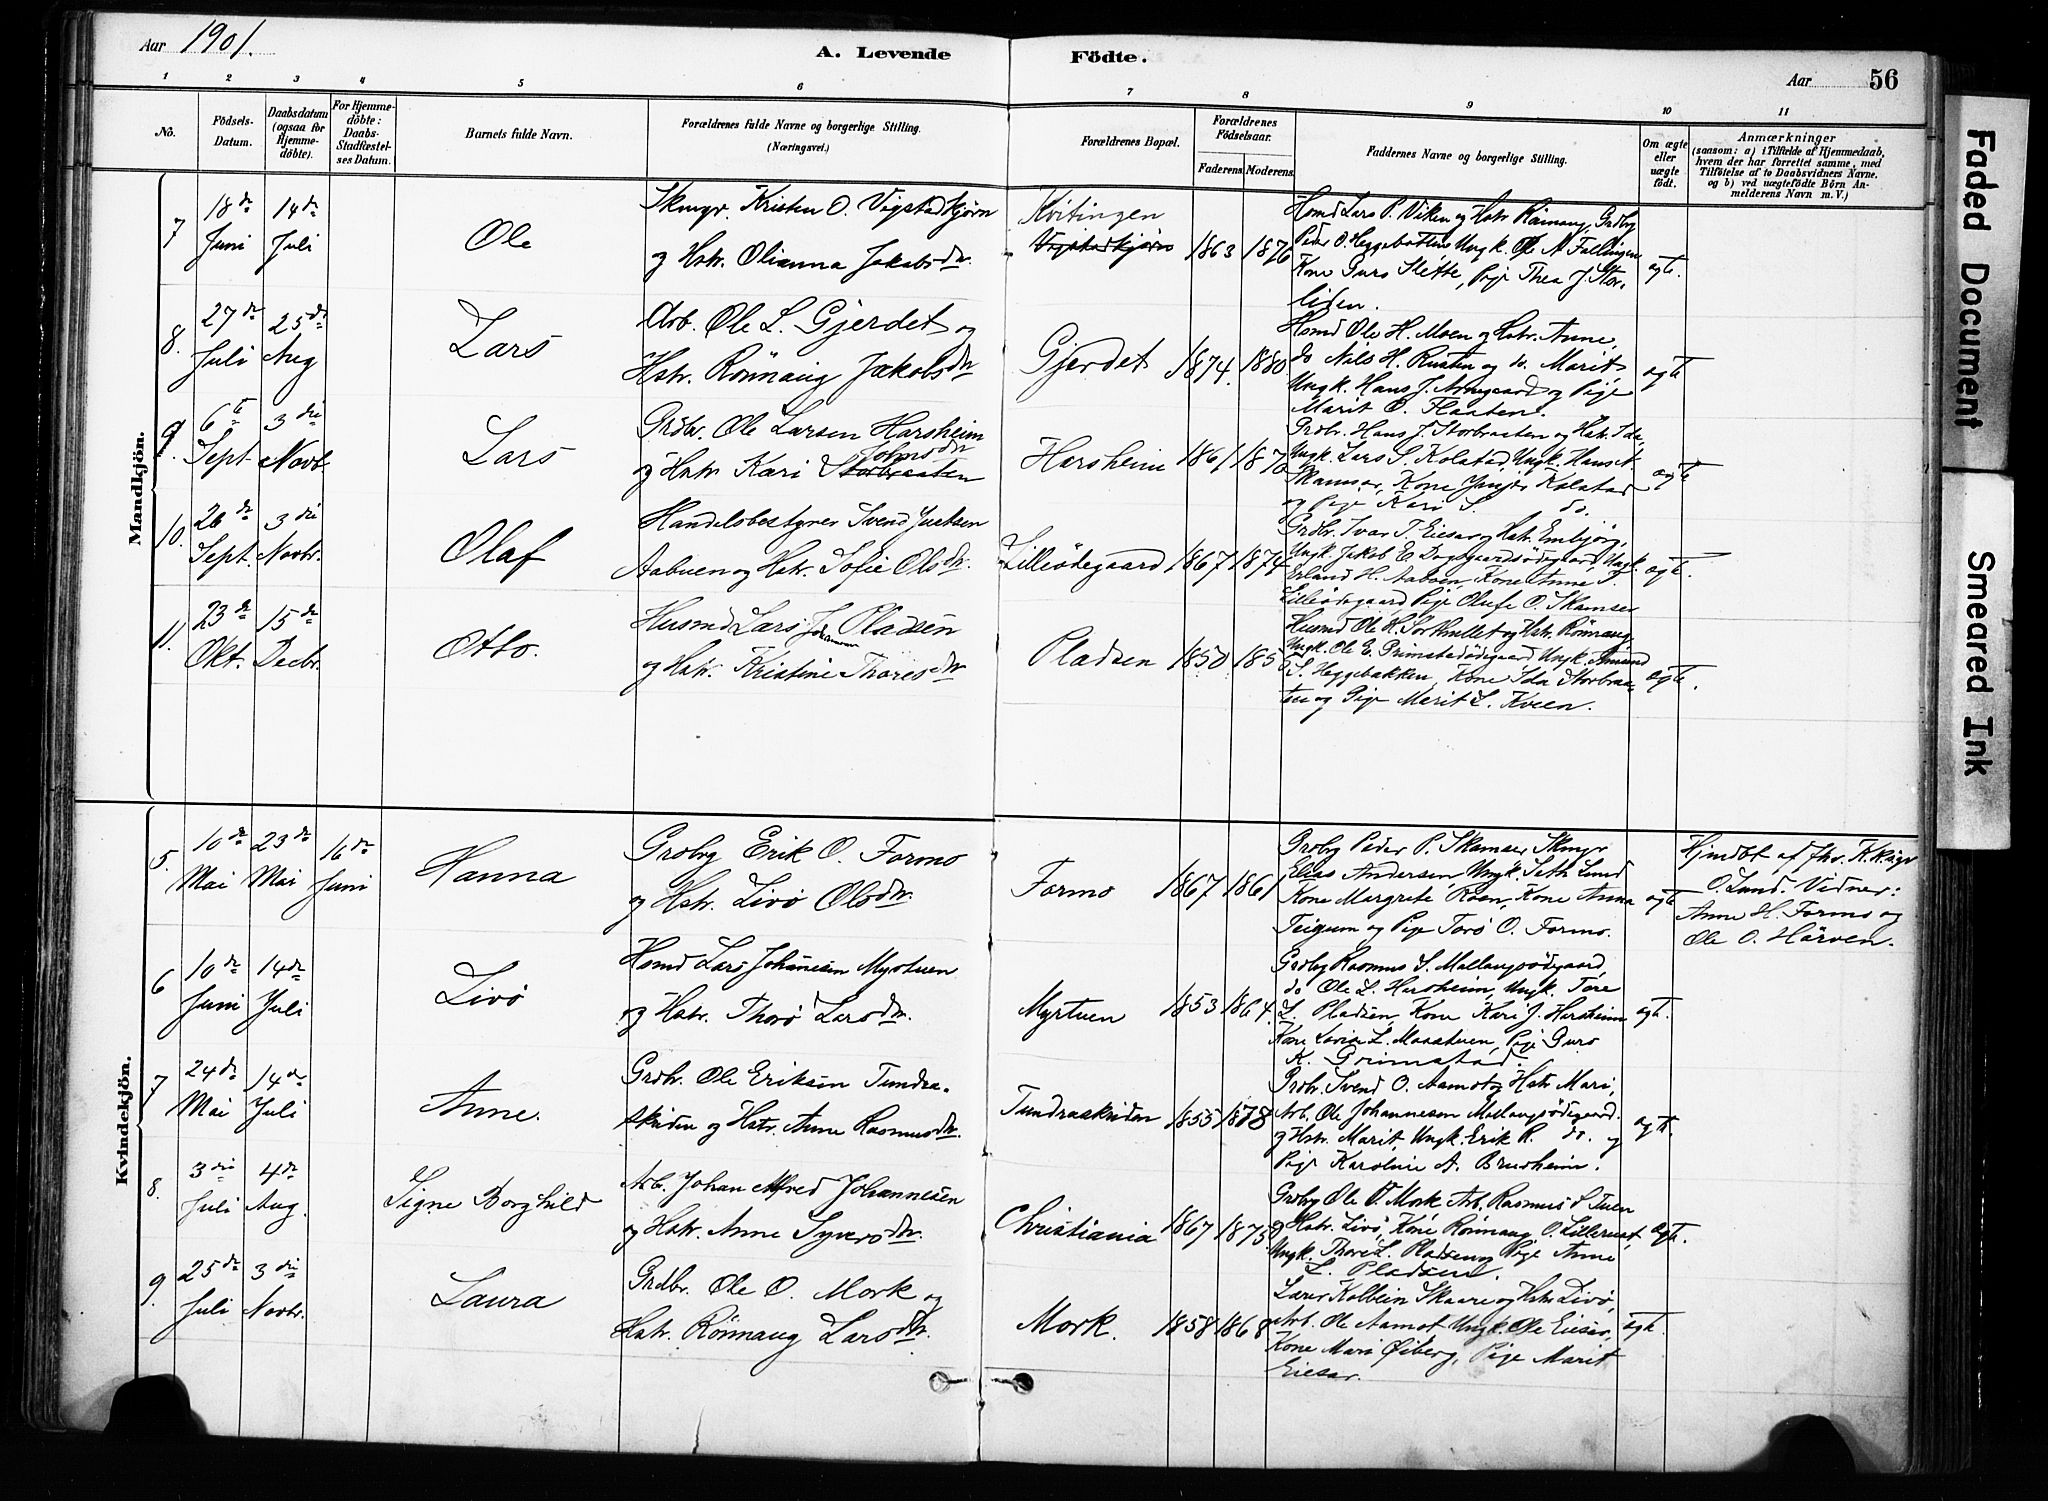 Aar 1901.
A. Levende Födte.
Aar 56
1 2 3 4 5 6 7 8 9 10 11
No.
Födsels-Datum.
Daabsdatum (ogsaa for Hjemmedöbte).
For Hjemmedöbte: Daabs-Stadfæstelses Datum.
Barnets fulde Navn.
Forældrenes fulde Navne og borgerlige Stilling. (Næringsvei.)
Forældrenes Bopæl.
Forældrenes Födselsaar.
Faderens Moderens
Faddernes Navne og borgerlige Stilling.
Om ægte eller uægte födt.
Anmærkninger
(saasom: a) i Tilfælde af Hjemmedaab,
hvem der har forrettet samme, med
Tilföielse af to Daabsvidners Navne.
og b) ved uægtefödte Börn Anmelderens Navn m.V.)
Mandkjön.
7
18de Juni
14de Juli
Ole
Skmgr. Kristen O. Vigstadkjörn
og Hstr. Olianna Jakobsdtr.
Kvitingen
Vigstadkjörn
1863 1876
Hsmd Lars P. Viken og Hstr Rönnaug, Grdbg
Peder O. Heggebottens Ungk. Ole N. Fallingen
Kone Guro Slette, Pige Thea J. Stor-
liden.
ægte.
8.
27de Juli
25de Aug
Lars
Arb. Ole L. Gjerdet og
Hstr. Rönnaug Jakobsdtr
Gjerdet
1874. 1880
Hsmd Ole H. Moen og Hstr. Anne,
do Nils H. Rusten og do. Marit,
Ungk. Hans J. Arngaard og Pige
Marit O. Flaaten.
ægte
9.
6te Sept
3die Novbr.
Lars
Grdbr. Ole Larsen Harsheim
og Hstr Kari Storbraaten
Johnsdtr
Harsheim
1861 1870
Grdbr. Hans J. Storbraaten og Hstr. Ida,
Ungk. Lars S. Kolstad, Ungk. Hans N.
Skamsar, Kone Kolstad
og Pige Kari S. do.
ægte
10.
26de Sept.
3die Novbr.
Olaf
Handelsbestyrer Svend
Aabuen og Hstr. Sofie Olsdtr.
Lilleödegaard
1867 1874
Grdbr. Ivar T. Eiesar og Hstr. Embjörg,
Ungk. Jakob E. Dagsgaardsödegaard, Ungk.
Erland H. Aaboen, Kone Anne T.
Lilleödegaard, Pige Olufe O. Skamsar
ægte.
11.
23de Okt.
15de Decbr.
Otto.
Husmd Lars Johannsen Pladsen
og Hstr. Kristine Thoresdtr
Pladsen
1850 1855
Husmd Ole H. Sorthullet og Hstr. Rönnaug
Ungk. Ole E. Grimstadödegaard Ungk. Amund
S. Heggebakken, Kone Ida Storbraa-
ten og Pige Marit L. Kveen.
ægte.
Kvindekjön.
5.
10de Mai
23de Mai
16de Juni
Hanna
Grdbg Erik O. Formo
og Hstr. Livö Olsdtr.
Formo
1867 1861
Grdbg Peder P. Skamsar Skmgr
Elias Andersen Ungk. Seth Lund
Kone Margrete Roen, Kone Anna
Teigum og Pige Torö O. Formo.
ægte
Hjmdöbt af fhv. K.sgr
O. Lund. Vidner:
Anne H. Formo og
Ole O. Harven.
6
10de Juni
14de Juli
Livö
Hsmd Lars Johansen Myrtuen
og Hstr. Thorö Larsdtr.
Myrtuen
1853 1864.
Grdbg Rasmus S. Mallangsödegaard,
do Ole L. Harsheim, Ungk. Tore
L. Pladsen, Kone Kari J. Harsheim
Kone Lovise L. Moastuen, Pige Guro
K. Grimstad.
ægte.
7
24de Mai
14de Juli
Anne.
Grdbr. Ole Eriksen Tundra-
skriden og Hstr. Anne Rasmusdtr.
Tundraskriden
1855 1878
Grdbr. Svend O. Aamot og Hstr Mari,
Arb. Ole Johannesen Mallangsödegaard
og Hstr. Marit, Ungk. Erik R. do. og
Pige Karoline A. Brusheim.
ægte.
8.
3die Juli
4de Aug.
Signe Borghild
Arb. Johan Alfred Johannesen
og Hstr. Anne Syversdtr.
Christiania
1867 1875
Grdbg Ole O. Mork Arb. Rasmus S. Tuen
og Hstr. Livö, Kone Rönnaug O. Lillerust
Ungk. Thore L. Pladsen og Pige Anne
L. Pladsen.
ægte.
9.
25de Juli
3die Novbr.
Laura
Grdbr. Ole O. Mork og
Hstr. Rönnaug Larsdtr.
Mork.
1858 1868
Lærer Kolbein Skaare og Hstr Livö,
Arb. Ole Aamot Ungk. Ole Eiesar,
Kone Mari Öiberg, Pige Marit
Eiesar.
ægte.
Faded Document
Smeared Ink